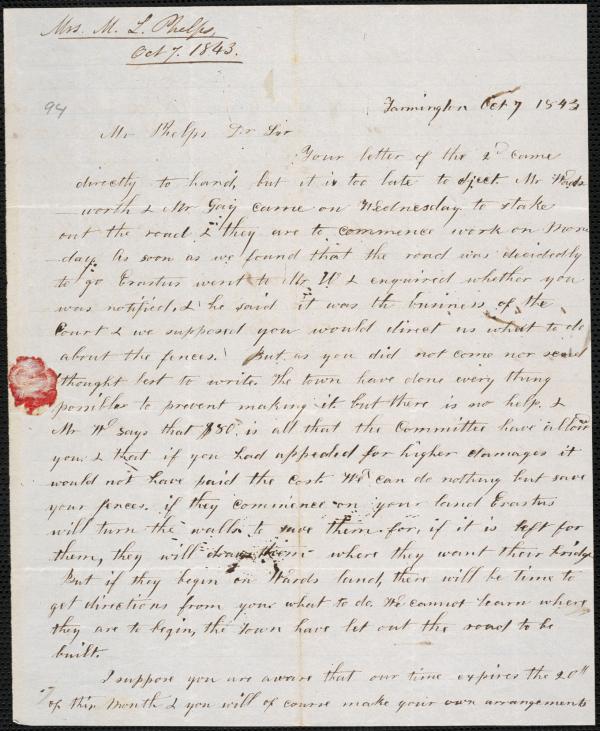 Mrs. M. L. Phelps,
Oct 7. 1843.
94
Farmington Oct 7 1843
Mr Phelps Dr Sir
Your letter of the 2d came
directly to hand, but it is too late to eject. Mr Wads
-worth & Mr Gay came on Wednesday to stake
out the road & they are to commence work on Mon
-day. As soon as we found that the road was decidedly
to go Erastus went to Mr. W & enquired whether you
was notified, & he said it was the business of the
Court & we supposed you would direct us what to do
about the fences. But as you did not come nor send
thought best to write. The town have done every thing
possible to prevent making it but there is no help. &
Mr Wd says that $50. is all that the Committee have allow
you & that if you had appealed for higher damages it
would not have paid the cost. We can do nothing but save
your fences. if they commence on your land Erastus
will turn the walls to save them for, if it is left for
them, they will draw them where they want their bridge
But if they begin on Wards land, there will be time to
get directions from you what to do. We cannot learn where
they are to begin, the Town have let out the road to be
built.
I suppose you are aware that our time expires the 20th
of this Month & you will of course make your own arrangements